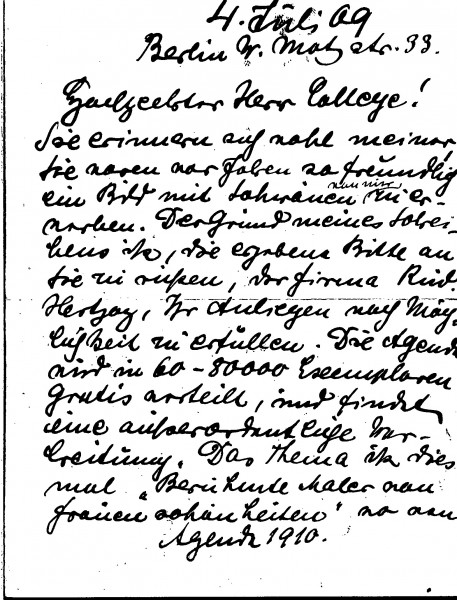 4. Juli 09
Berlin W. Motzstr. 33.
Hochgeehrter Herr College!
Sie erinnern sich wohl meiner,
Sie waren vor Jahren so freundlich
ein Bild mit Schwänen von mir zu er-
werben. Der Grund meines Schrei-
bens ist, die ergebene Bitte an
Sie zu richten, der Firma Rud.
Hertzog, Ihr Anliegen nach Mög-
lichkeit zu erfüllen. Die Agenda
wird in 60-80000 Exemplaren
gratis verteilt, und findet
eine außerordentliche Ver-
breitung. Das Thema ist dies
mal „Berühmte Maler von
Frauenschönheiten"
Agenda 1910.